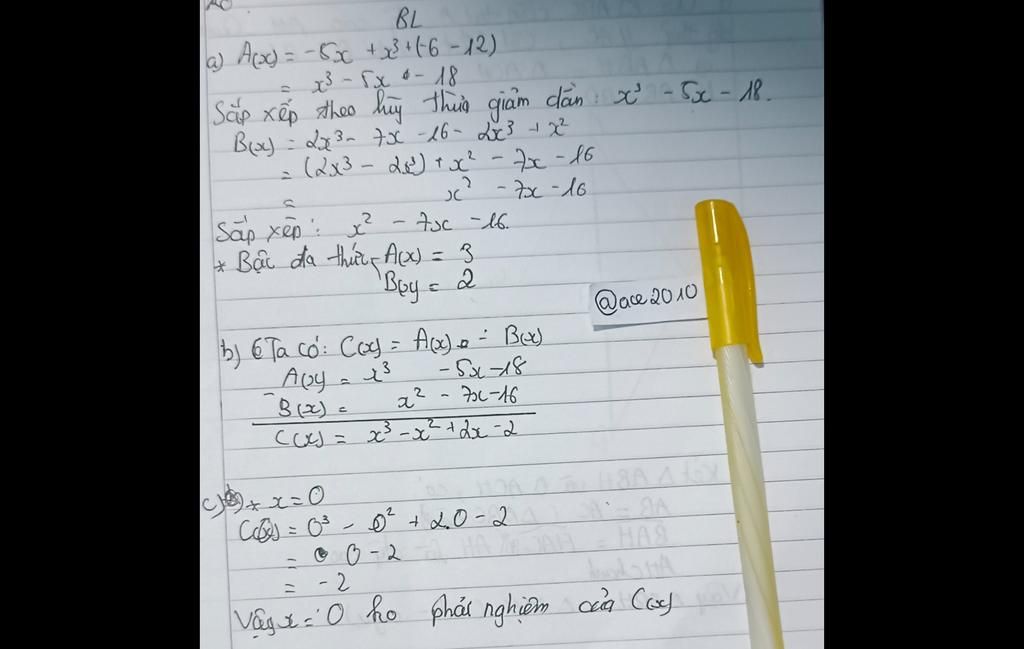 BL
a) A(x) = -5x + x³ + (-6 - 12)
= x³ - 5x - 18
Sắp xếp theo lũy thừa giảm dần: x³ - 5x - 18.
B(x) = 2x³ - 7x - 16 - 2x³ + x²
= (2x³ - 2x³) + x² - 7x - 16
= x² - 7x - 16
Sắp xếp: x² - 7x - 16.
* Bậc đa thức A(x) = 3
B(x) = 2
@ace2010
b) Ta có: C(x) = A(x) - B(x)
A(x) = x³ - 5x - 18
- B(x) = x² - 7x - 16
C(x) = x³ - x² + 2x - 2
c) * x = 0
C(0) = 0³ - 0² + 2.0 - 2
= 0 - 2
= -2
Vậy x = 0 ko phải nghiệm của C(x)